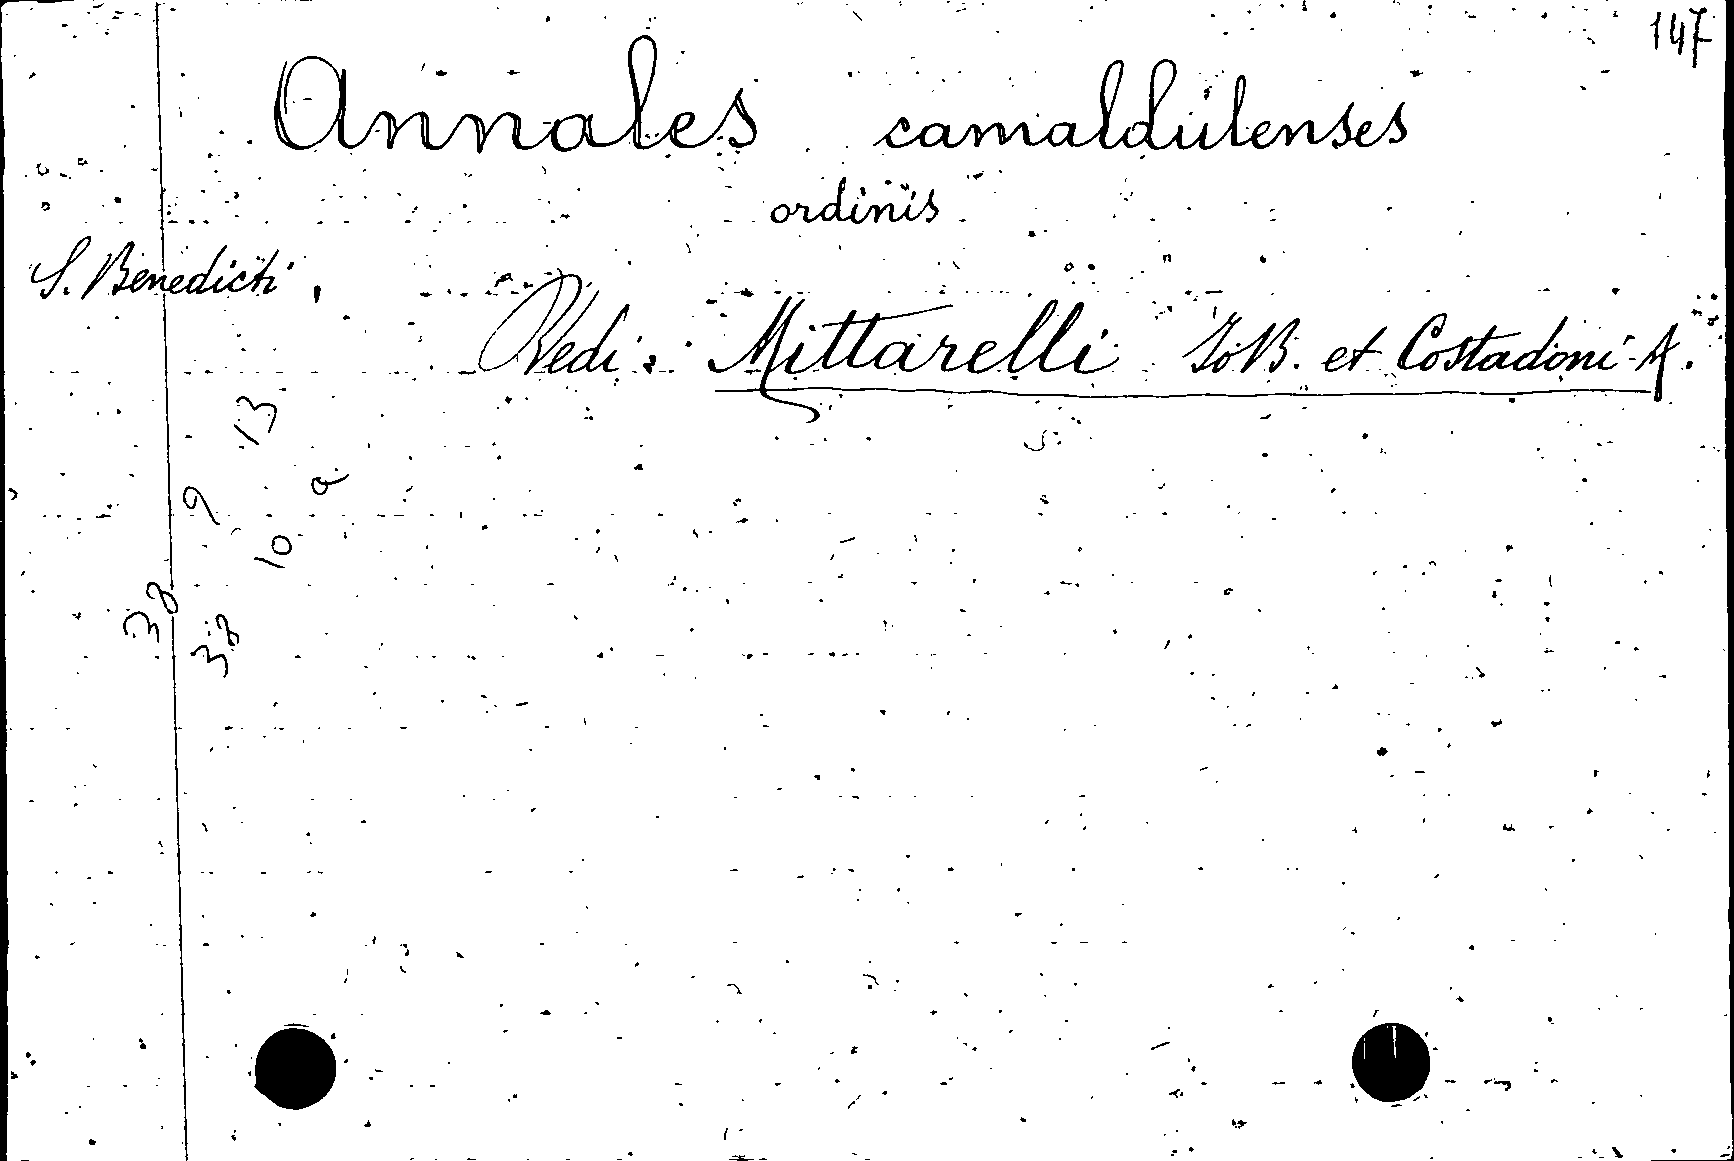 147
Annales camaldulenses
ordinis
S. Benedicti,
Vedi: Mittarelli Io B. et Costadoni A.
13
9 a
10
38
38